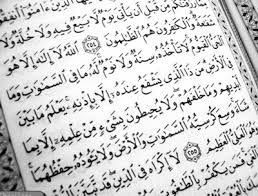 رَزَقْنَٰكُم مِّن قَبْلِ أَن يَأْتِيَ يَوْمٌ لَّا بَيْعٌ فِيهِ وَلَا خُلَّةٌ وَلَا
شَفَٰعَةٌ وَٱلْكَٰفِرُونَ هُمُ ٱلظَّٰلِمُونَ ٢٥٤ ٱللَّهُ لَآ إِلَٰهَ إِلَّا هُوَ
ٱلْحَيُّ ٱلْقَيُّومُ لَا تَأْخُذُهُۥ سِنَةٌ وَلَا نَوْمٌ لَّهُۥ مَا فِي ٱلسَّمَٰوَٰتِ وَمَا
فِي ٱلْأَرْضِ مَن ذَا ٱلَّذِي يَشْفَعُ عِندَهُۥٓ إِلَّا بِإِذْنِهِۦ يَعْلَمُ مَا بَيْنَ
أَيْدِيهِمْ وَمَا خَلْفَهُمْ وَلَا يُحِيطُونَ بِشَيْءٍ مِّنْ عِلْمِهِۦٓ إِلَّا بِمَا
شَآءَ وَسِعَ كُرْسِيُّهُ ٱلسَّمَٰوَٰتِ وَٱلْأَرْضَ وَلَا يَـُٔودُهُۥ حِفْظُهُمَا
وَهُوَ ٱلْعَلِيُّ ٱلْعَظِيمُ ٢٥٥ لَآ إِكْرَاهَ فِي ٱلدِّينِ قَد تَّبَيَّنَ
فَمَن يَكْفُرْ